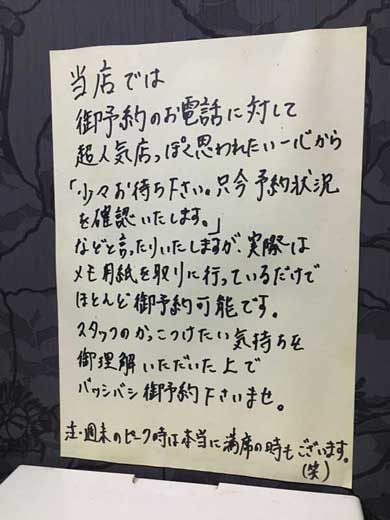 当店では
御予約のお電話に対して
超人気店っぽく思われたい一心から
「少々お待ち下さい。只今予約状況
を確認いたします。」
などと言ったりいたしますが、実際は
メモ用紙を取りに行っているだけで
ほとんど御予約可能です。
スタッフのかっこつけたい気持ちを
御理解いただいた上で
バッシバシ御予約下さいませ。
注・週末のピーク時は本当に満席の時もございます。
(笑)